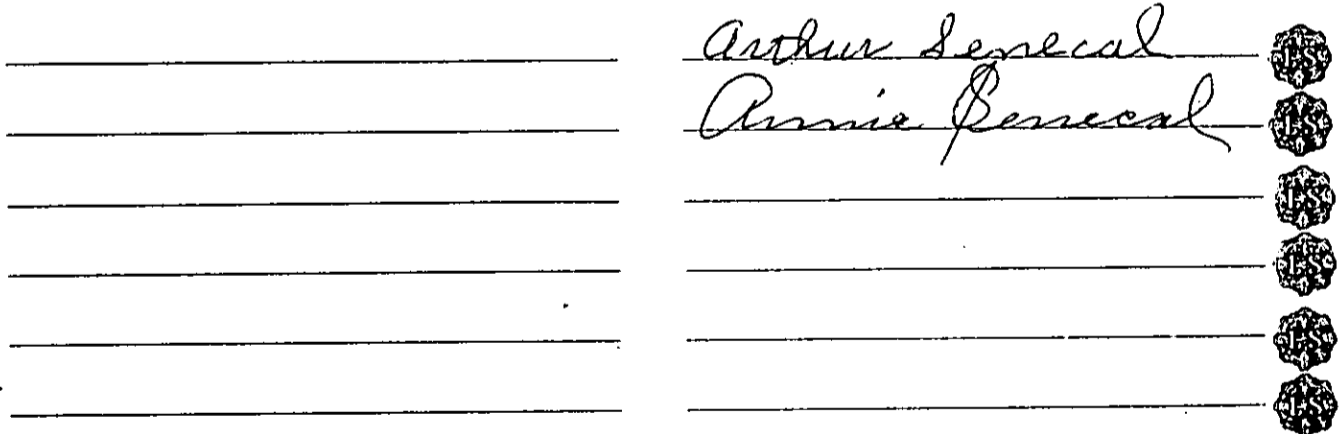 Arthur Senecal LS
Annie Senecal LS
LS
LS
LS
LS